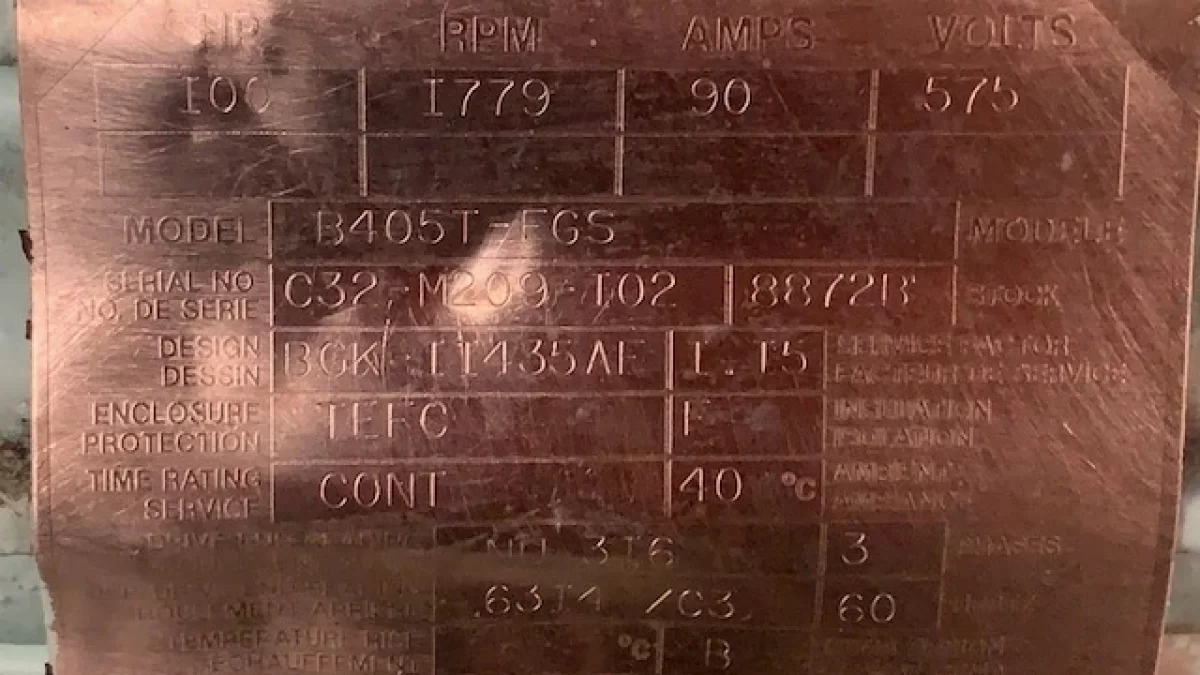 HP RPM AMPS VOLTS
100 1779 90 575
MODEL B405T-FGS MODELE
SERIAL NO
NO. DE SERIE C32-M209-102 8872B STOCK
DESIGN SERVICE FACTOR
DESSIN 1.15 FACTEUR DE SERVICE
ENCLOSURE TEFC F INSULATION
PROTECTION ISOLATION
TIME RATING CONT 40 °C AMBIENT
SERVICE AMBIANCE
NU 316 3 PHASES
ROULEMENT ARRIERE 6314 /C3 60 HERTZ
TEMPERATURE RISE °C B
ECHAUFFEMENT